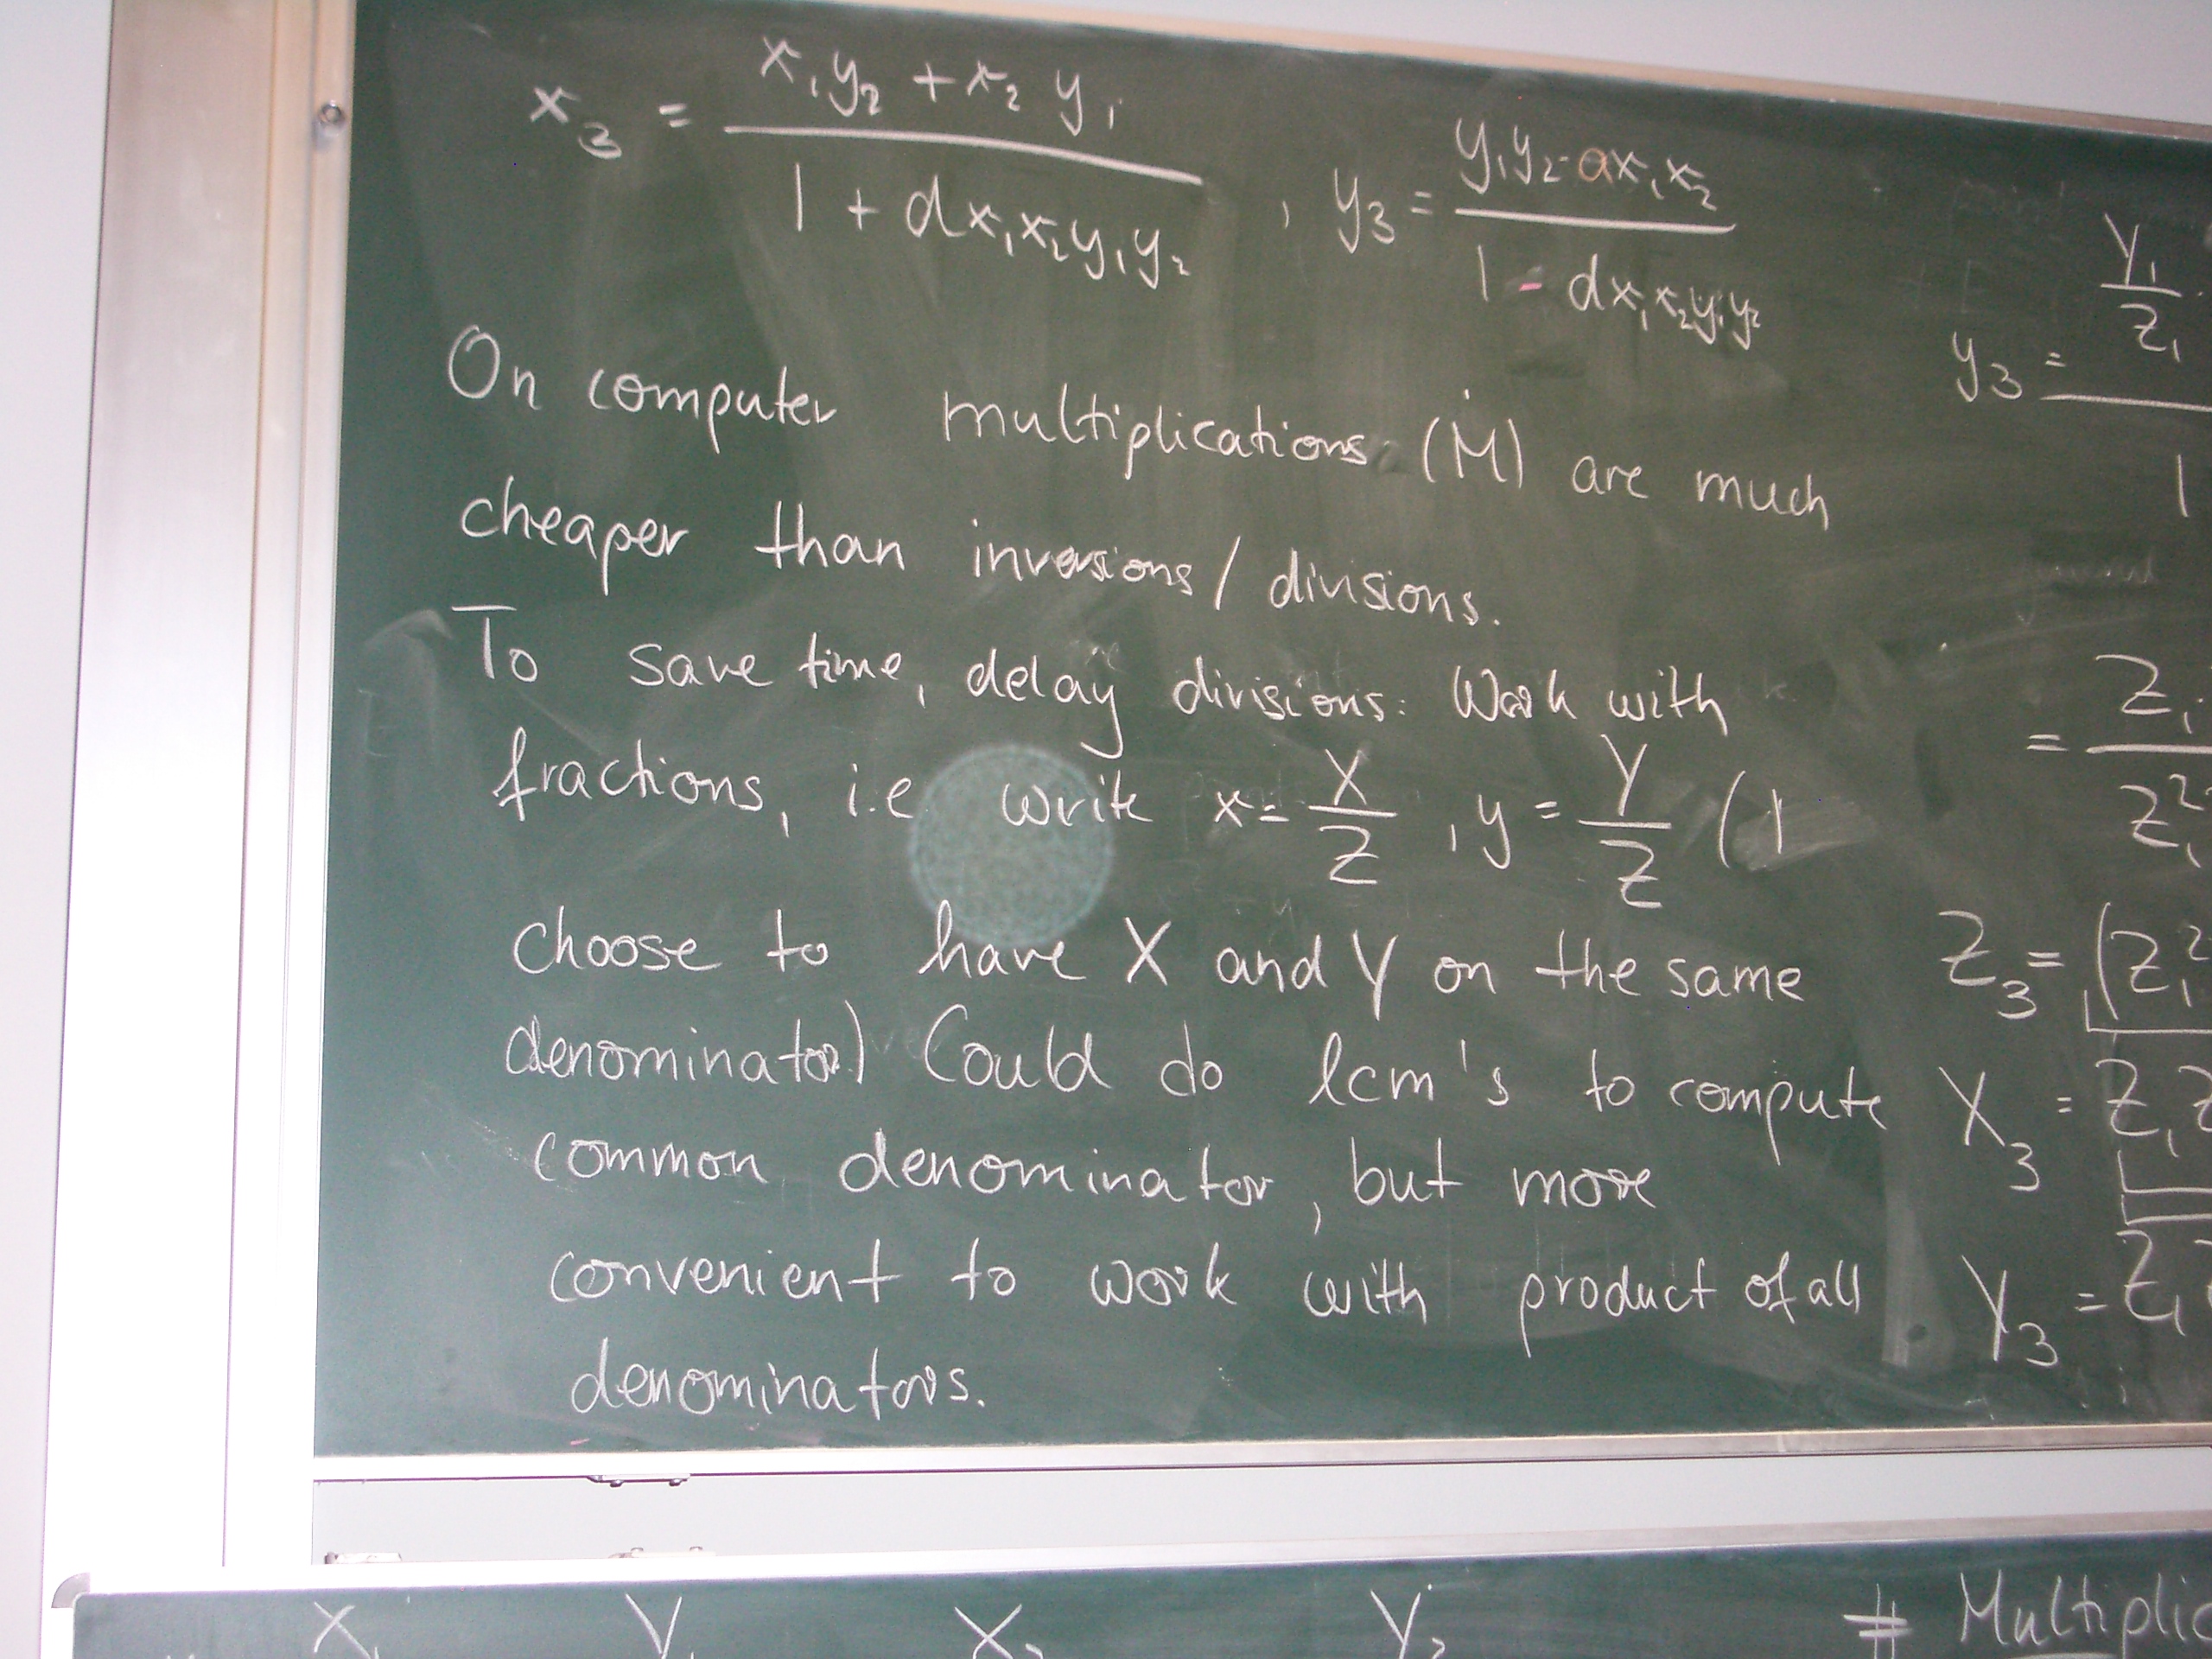 x₃ = (x₁y₂ + x₂y₁) / (1 + dx₁x₂y₁y₂) , y₃ = (y₁y₂ - ax₁x₂) / (1 - dx₁x₂y₁y₂)
On computer multiplications (M) are much
cheaper than inversions / divisions.
To save time, delay divisions: Work with
fractions, i.e write x = X/Z , y = Y/Z (I
choose to have X and Y on the same
denominator) Could do lcm's to compute
common denominator, but more
convenient to work with product of all
denominators.
y₃ = Y₁/Z₁
1
= Z₁ / Z₁²
Z₃ = (Z₁²
X₃ = Z₁Z
Y₃ = Z₁
X₁ Y₁ X₂ Y₂ # Multiplic